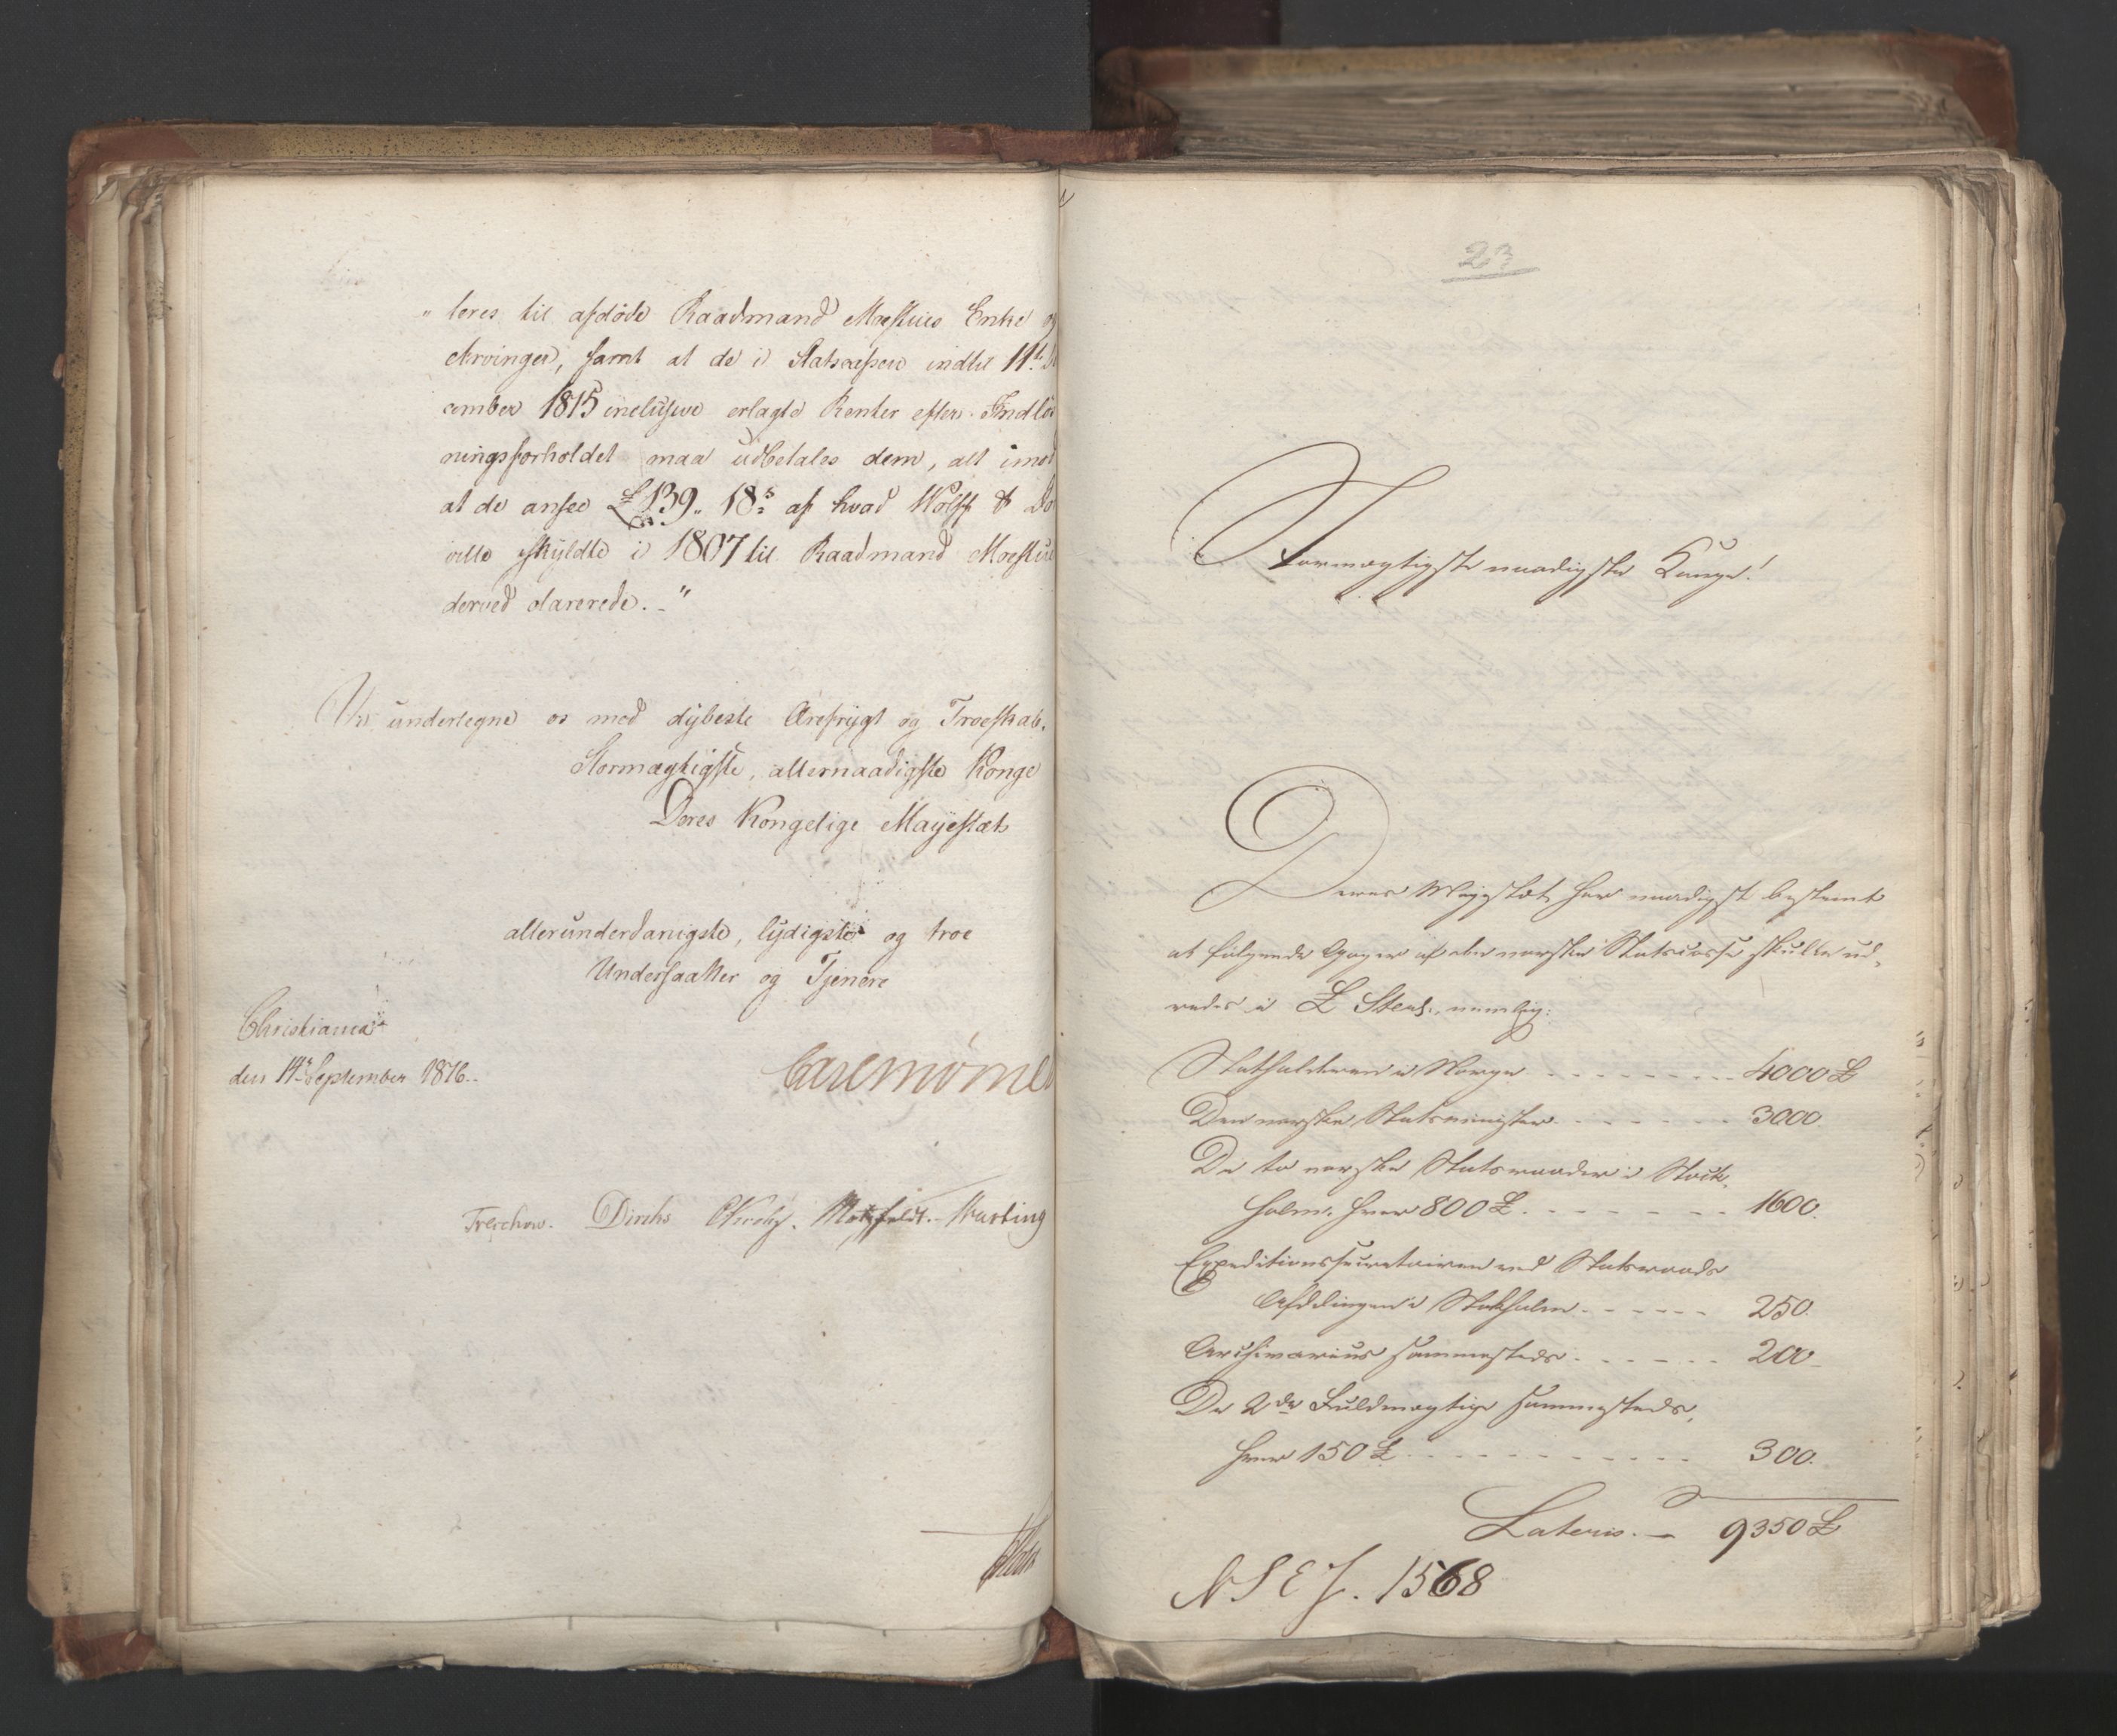 „ leres til afdöde Raadmand Moestues Enke og
Arvinger, samt at de i Statscassen indtil 11t. De
cember 1815 inclusive erlagte Renter efter Indlös
ningsforholdet maa udbetales dem, alt imod
at de ansee £ 139„ 18s af hvad Wolff & Do
ville skyldte i 1807 til Raadmand Moestue
derved clarerede. _"
Vi undertegne os med dybeste Ærefrygt og Troeskab.
Stormægtigste, allernaadigste Konge
Deres Kongelige Mayestæts
allerunderdanigste, lydigste og troe
Undersaatter og Tjenere
Christiania
den 14 September 1816..
Carl Mörner
Treschow. Dircks Krebs. Motzfeldt. Hasting
23
Stormægtigste naadigste Konge!
Deres Mayestæt har naadigst bestemt
at følgende Gager af den norske Statscasse skulle ud„
redes i £ Sterl., nemlig:
Statholderen i Norge - - - - - - - 4000 £
Den norske Statsminister - - - - - - 3000.
De to norske Statsraader i Stock„
holm. hver 800 £. - - - - - - - 1600.
Expeditionssecretairen ved Statsraads
Afdelingen i Stokholm. - - - - - - 250.
Archivarius sammesteds. - - - - - 200
De 2de Fuldmægtige sammesteds,
hver 150 £ - - - - - - - - - - 300.
Lateris. — 9350 £
N S E J. 1568